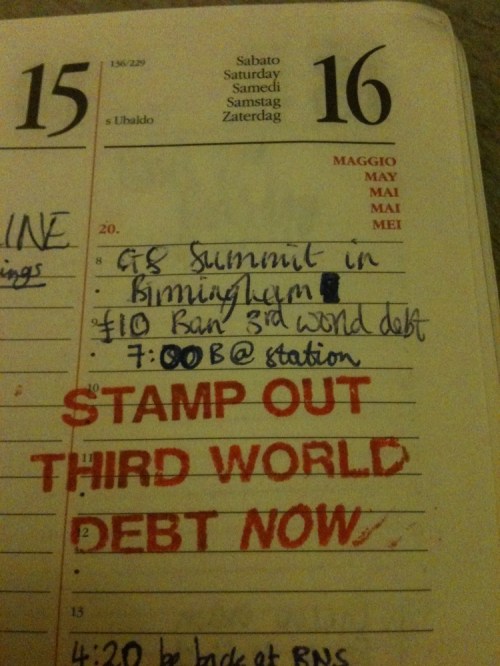 15
136/229
Sabato
Saturday
Samedi
Samstag
Zaterdag
s Ubaldo
16
MAGGIO
MAY
MAI
MAI
MEI
20.
INE
ings
8 G8 Summit in
Birmingham
9 £10 Ban 3rd world debt
7:00 B @ station
10
STAMP OUT
11
THIRD WORLD
12
DEBT NOW
13
4:20 be back at BNS